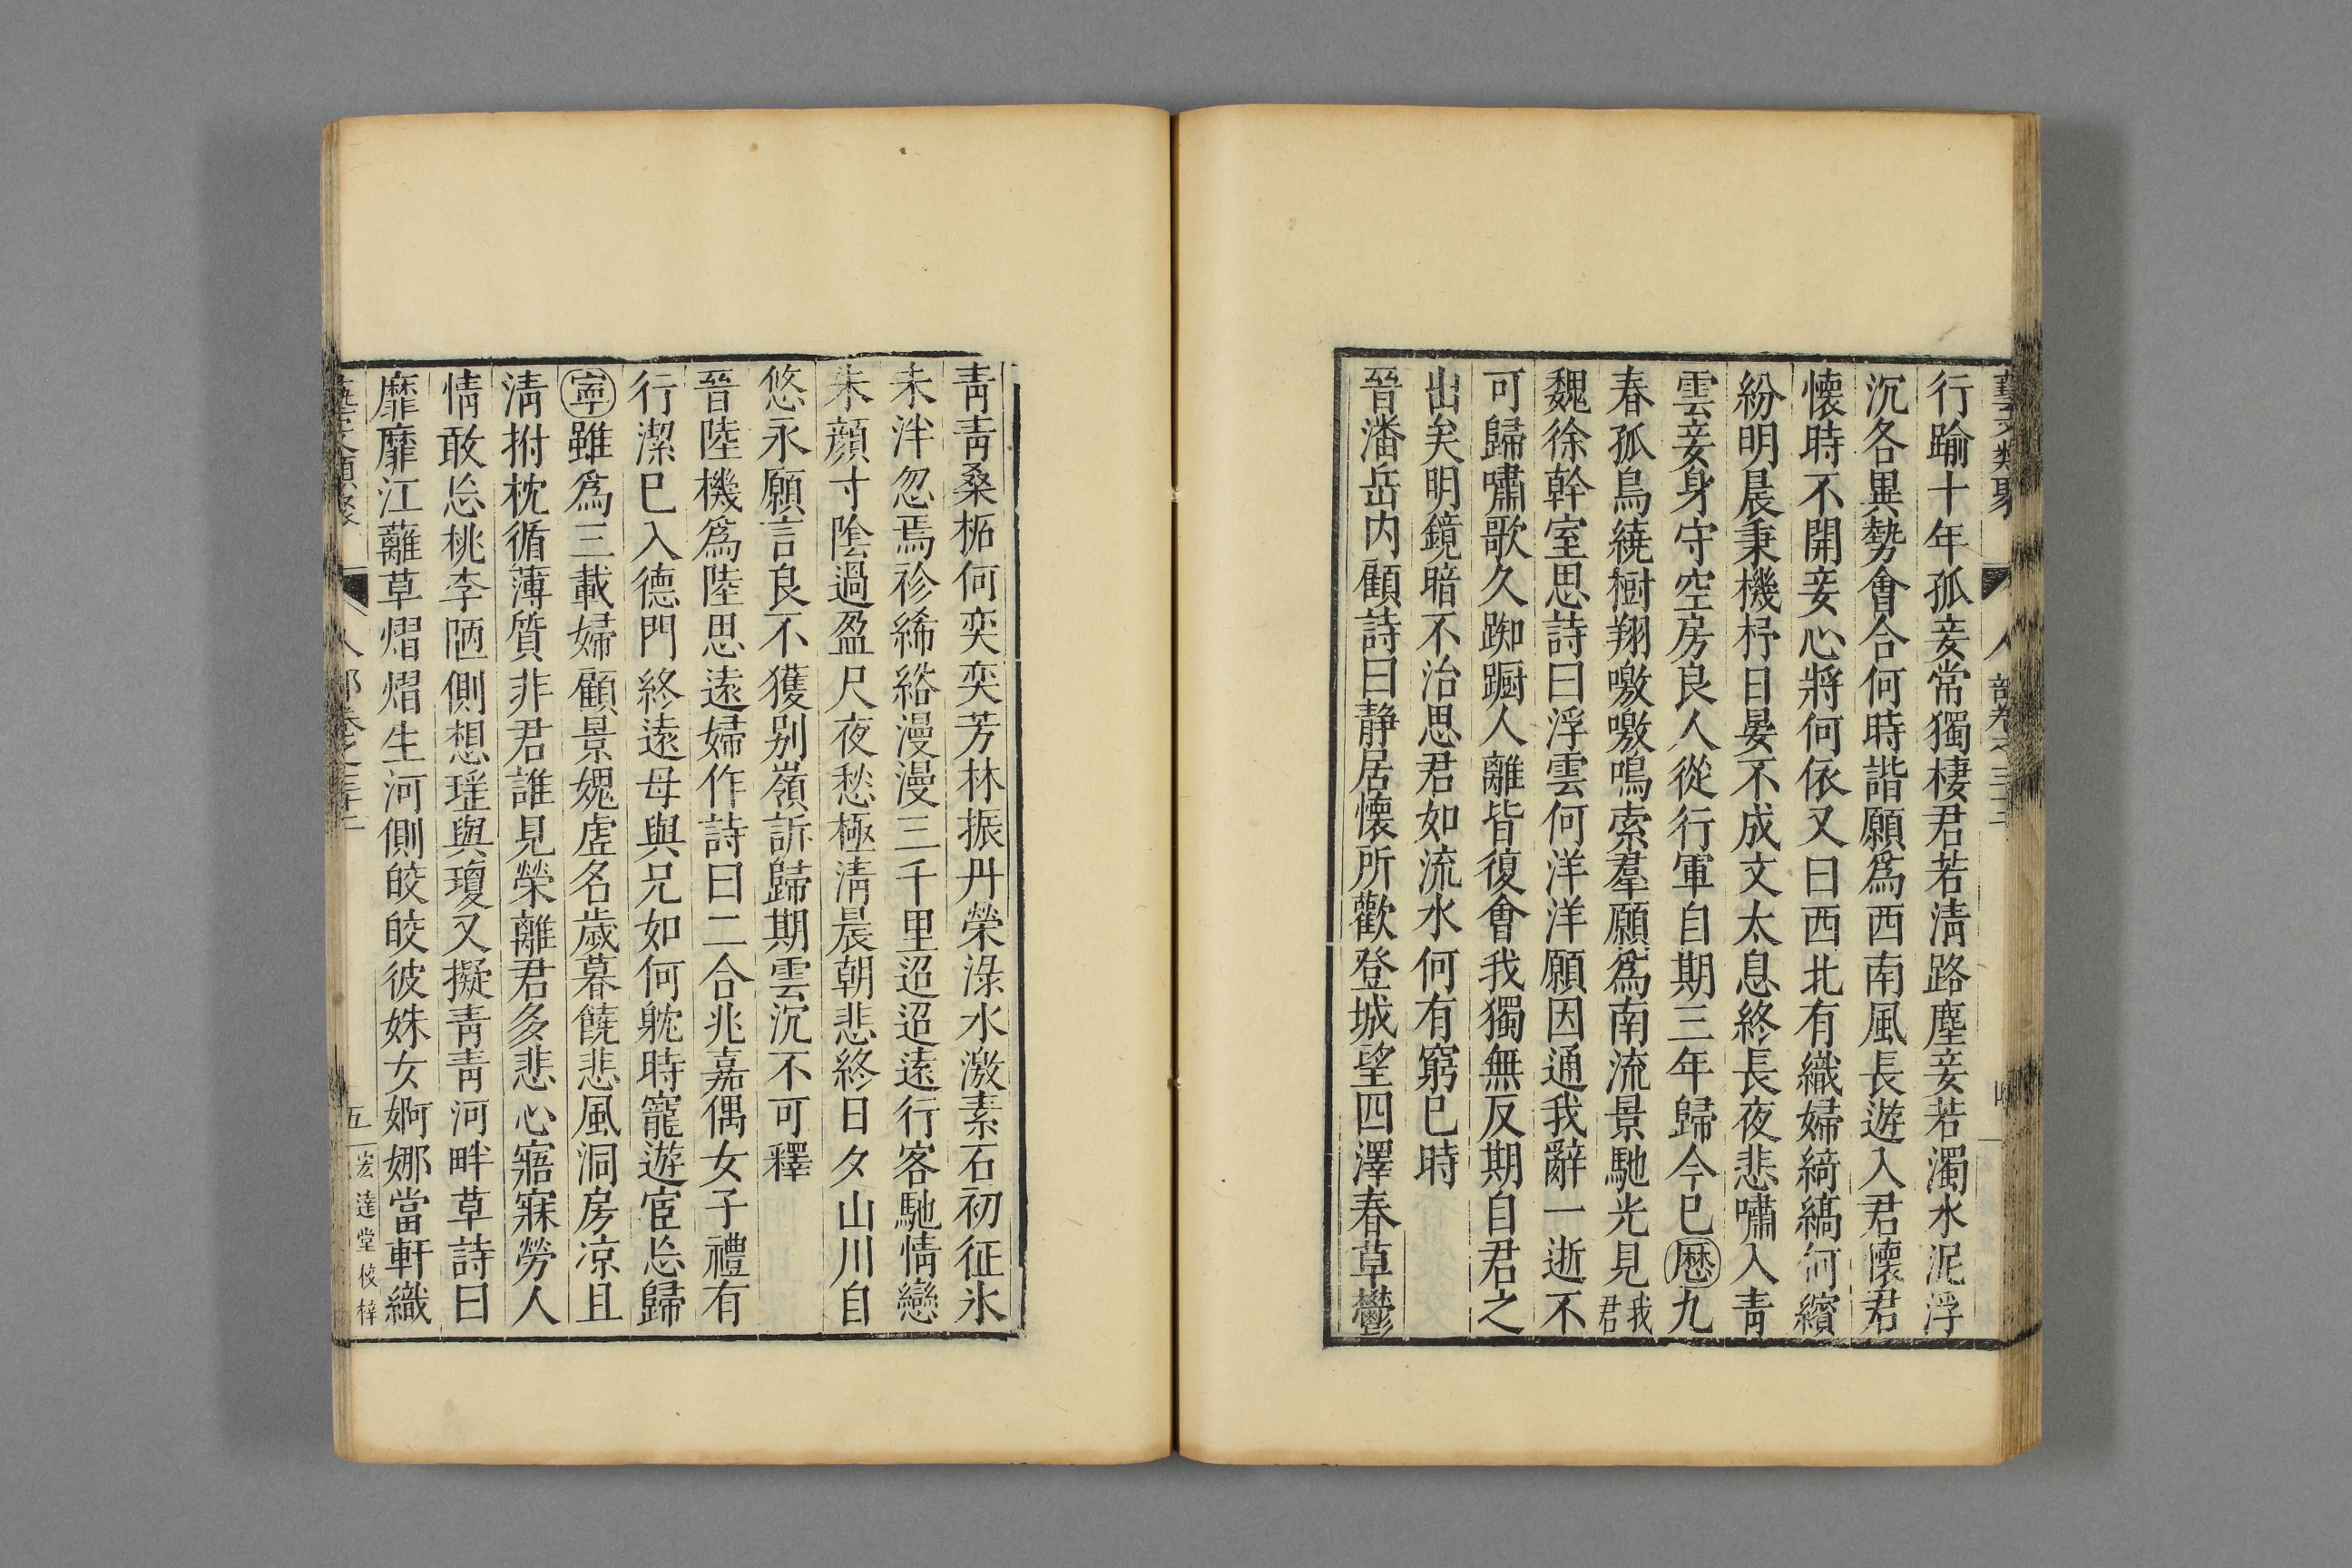 藝文類聚 人部卷之三十二
行踰十年孤妾常獨棲君若淸路塵妾若濁水泥浮
沉各異勢會合何時諧願爲西南風長遊入君懷君
懷時不開妾心將何依又曰西北有織婦綺縞何繽
紛明晨秉機杼日晏不成文太息終長夜悲嘯入靑
雲妾身守空房良人從行軍自期三年歸今已歷九
春孤鳥繞樹翔噭噭鳴索羣願爲南流景馳光見我君
魏徐幹室思詩曰浮雲何洋洋願因通我辭一逝不
可歸嘯歌久踟蹰人離皆復會我獨無反期自君之
出矣明鏡暗不治思君如流水何有窮已時
晉潘岳内顧詩曰静居懷所歡登城望四澤春草鬱
靑靑桑柘何奕奕芳林振丹榮淥水激素石初征氷
未泮忽焉袗絺綌漫漫三千里迢迢遠行客馳情戀
朱顔寸陰過盈尺夜愁極淸晨朝悲終日夕山川自
悠永願言良不獲别嶺訴歸期雲沉不可釋
晉陸機爲陸思遠婦作詩曰二合兆嘉偶女子禮有
行潔已入德門終遠母與兄如何躭時寵遊宦忘歸
寧雖爲三載婦顧景媿虚名歲暮饒悲風洞房凉且
淸拊枕循薄質非君誰見榮離君多悲心寤寐勞人
情敢忘桃李陋側想瑤與瓊又擬靑靑河畔草詩曰
靡靡江蘺草熠熠生河側皎皎彼姝女婀娜當軒織
藝文類聚 人部卷之三十二 五 宏達堂校梓